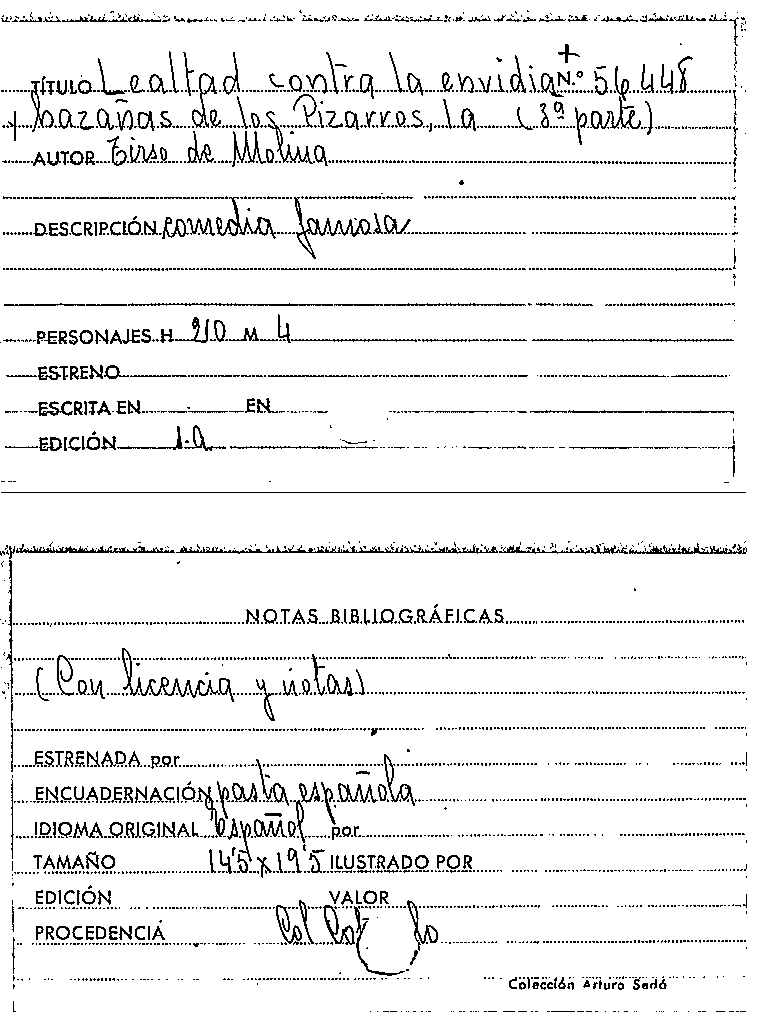 TÍTULO Lealtad contra la envidia N.º 56448
y hazañas de los Pizarros, la (3ª parte)
AUTOR Tirso de Molina
DESCRIPCIÓN comedia famosa
PERSONAJES H M 4
ESTRENO
ESCRITA EN EN
EDICIÓN
NOTAS BIBLIOGRÁFICAS
(Con licencia y notas)
ESTRENADA por
ENCUADERNACIÓN pasta española
IDIOMA ORIGINAL Español por
TAMAÑO 14'5 x 19'5 ILUSTRADO POR
EDICIÓN VALOR
PROCEDENCIA Col
Colección Arturo Sedó